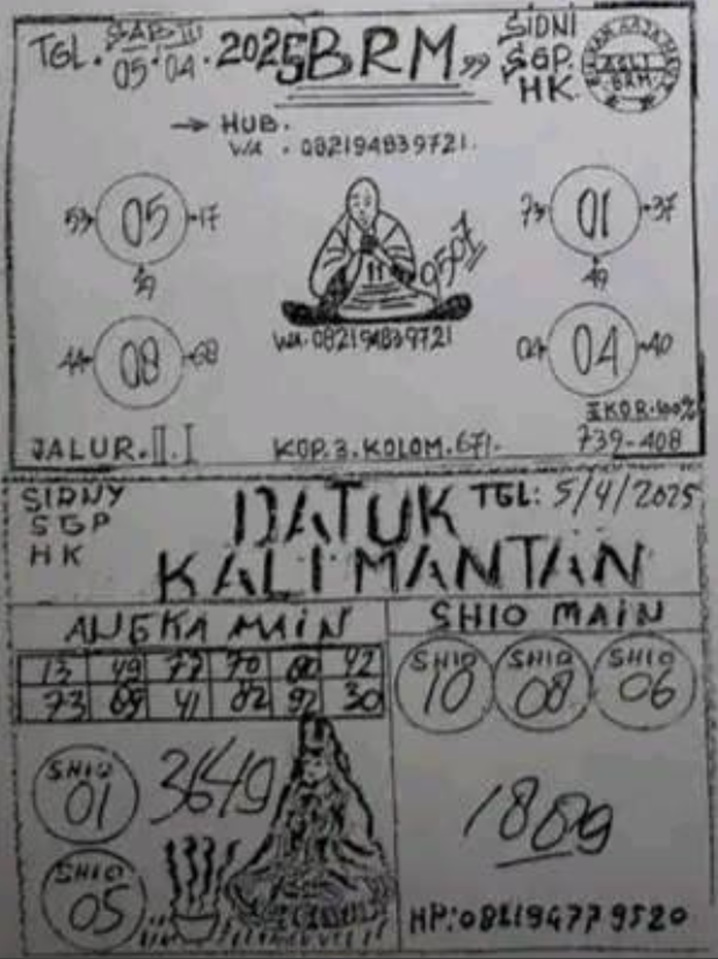 TGL. SABTU 05.04.2025 BRM"
SIDNI
SGP.
HK
ASLI
BRM
→ HUB.
WA. 082194839721.
05
17
73 01 37
49
9507
WA. 082194839721
44 08 68
04 04 40
EKOR.100%
739-408
JALUR.II.I
KOP.3.KOLOM.671.
SIDNY
SGP
HK
DATUK
KALIMANTAN
TGL: 5/4/2025
ANGKA MAIN
13 49 77 70 42
73 41 02 92 30
SHIO MAIN
SHIO 10
SHIO 08
SHIO 06
SHIO 01
3649
SHIO 05
HP:082194779520